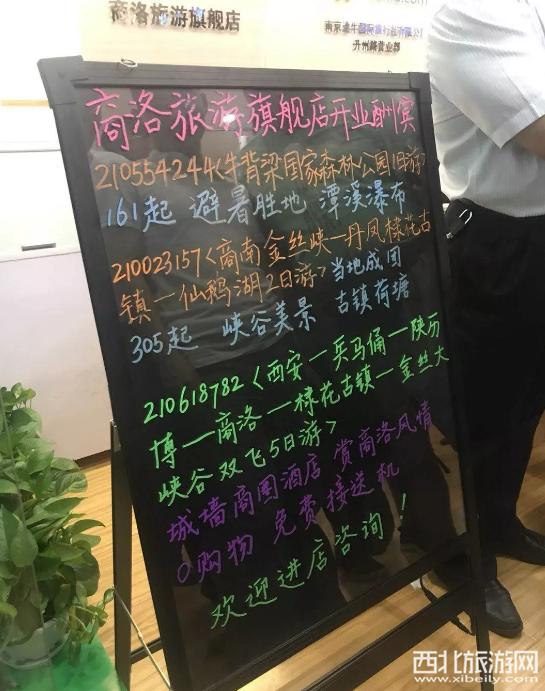 商洛旅游旗舰店
南京途牛国际旅行社有限公司
升州路营业部
商洛旅游旗舰店开业酬宾
210554244<牛背梁国家森林公园1日游>
161起 避暑胜地 潭溪瀑布
210023157<商南金丝峡—丹凤棣花古
镇—仙鹅湖2日游>当地成团
305起 峡谷美景 古镇荷塘
210618782<西安—兵马俑—陕历
博—商洛—棣花古镇—金丝大
峡谷双飞5日游>
城墙商圈酒店 赏商洛风情
0购物 免费接送机
欢迎进店咨询!
西北旅游网
www.xibeily.com